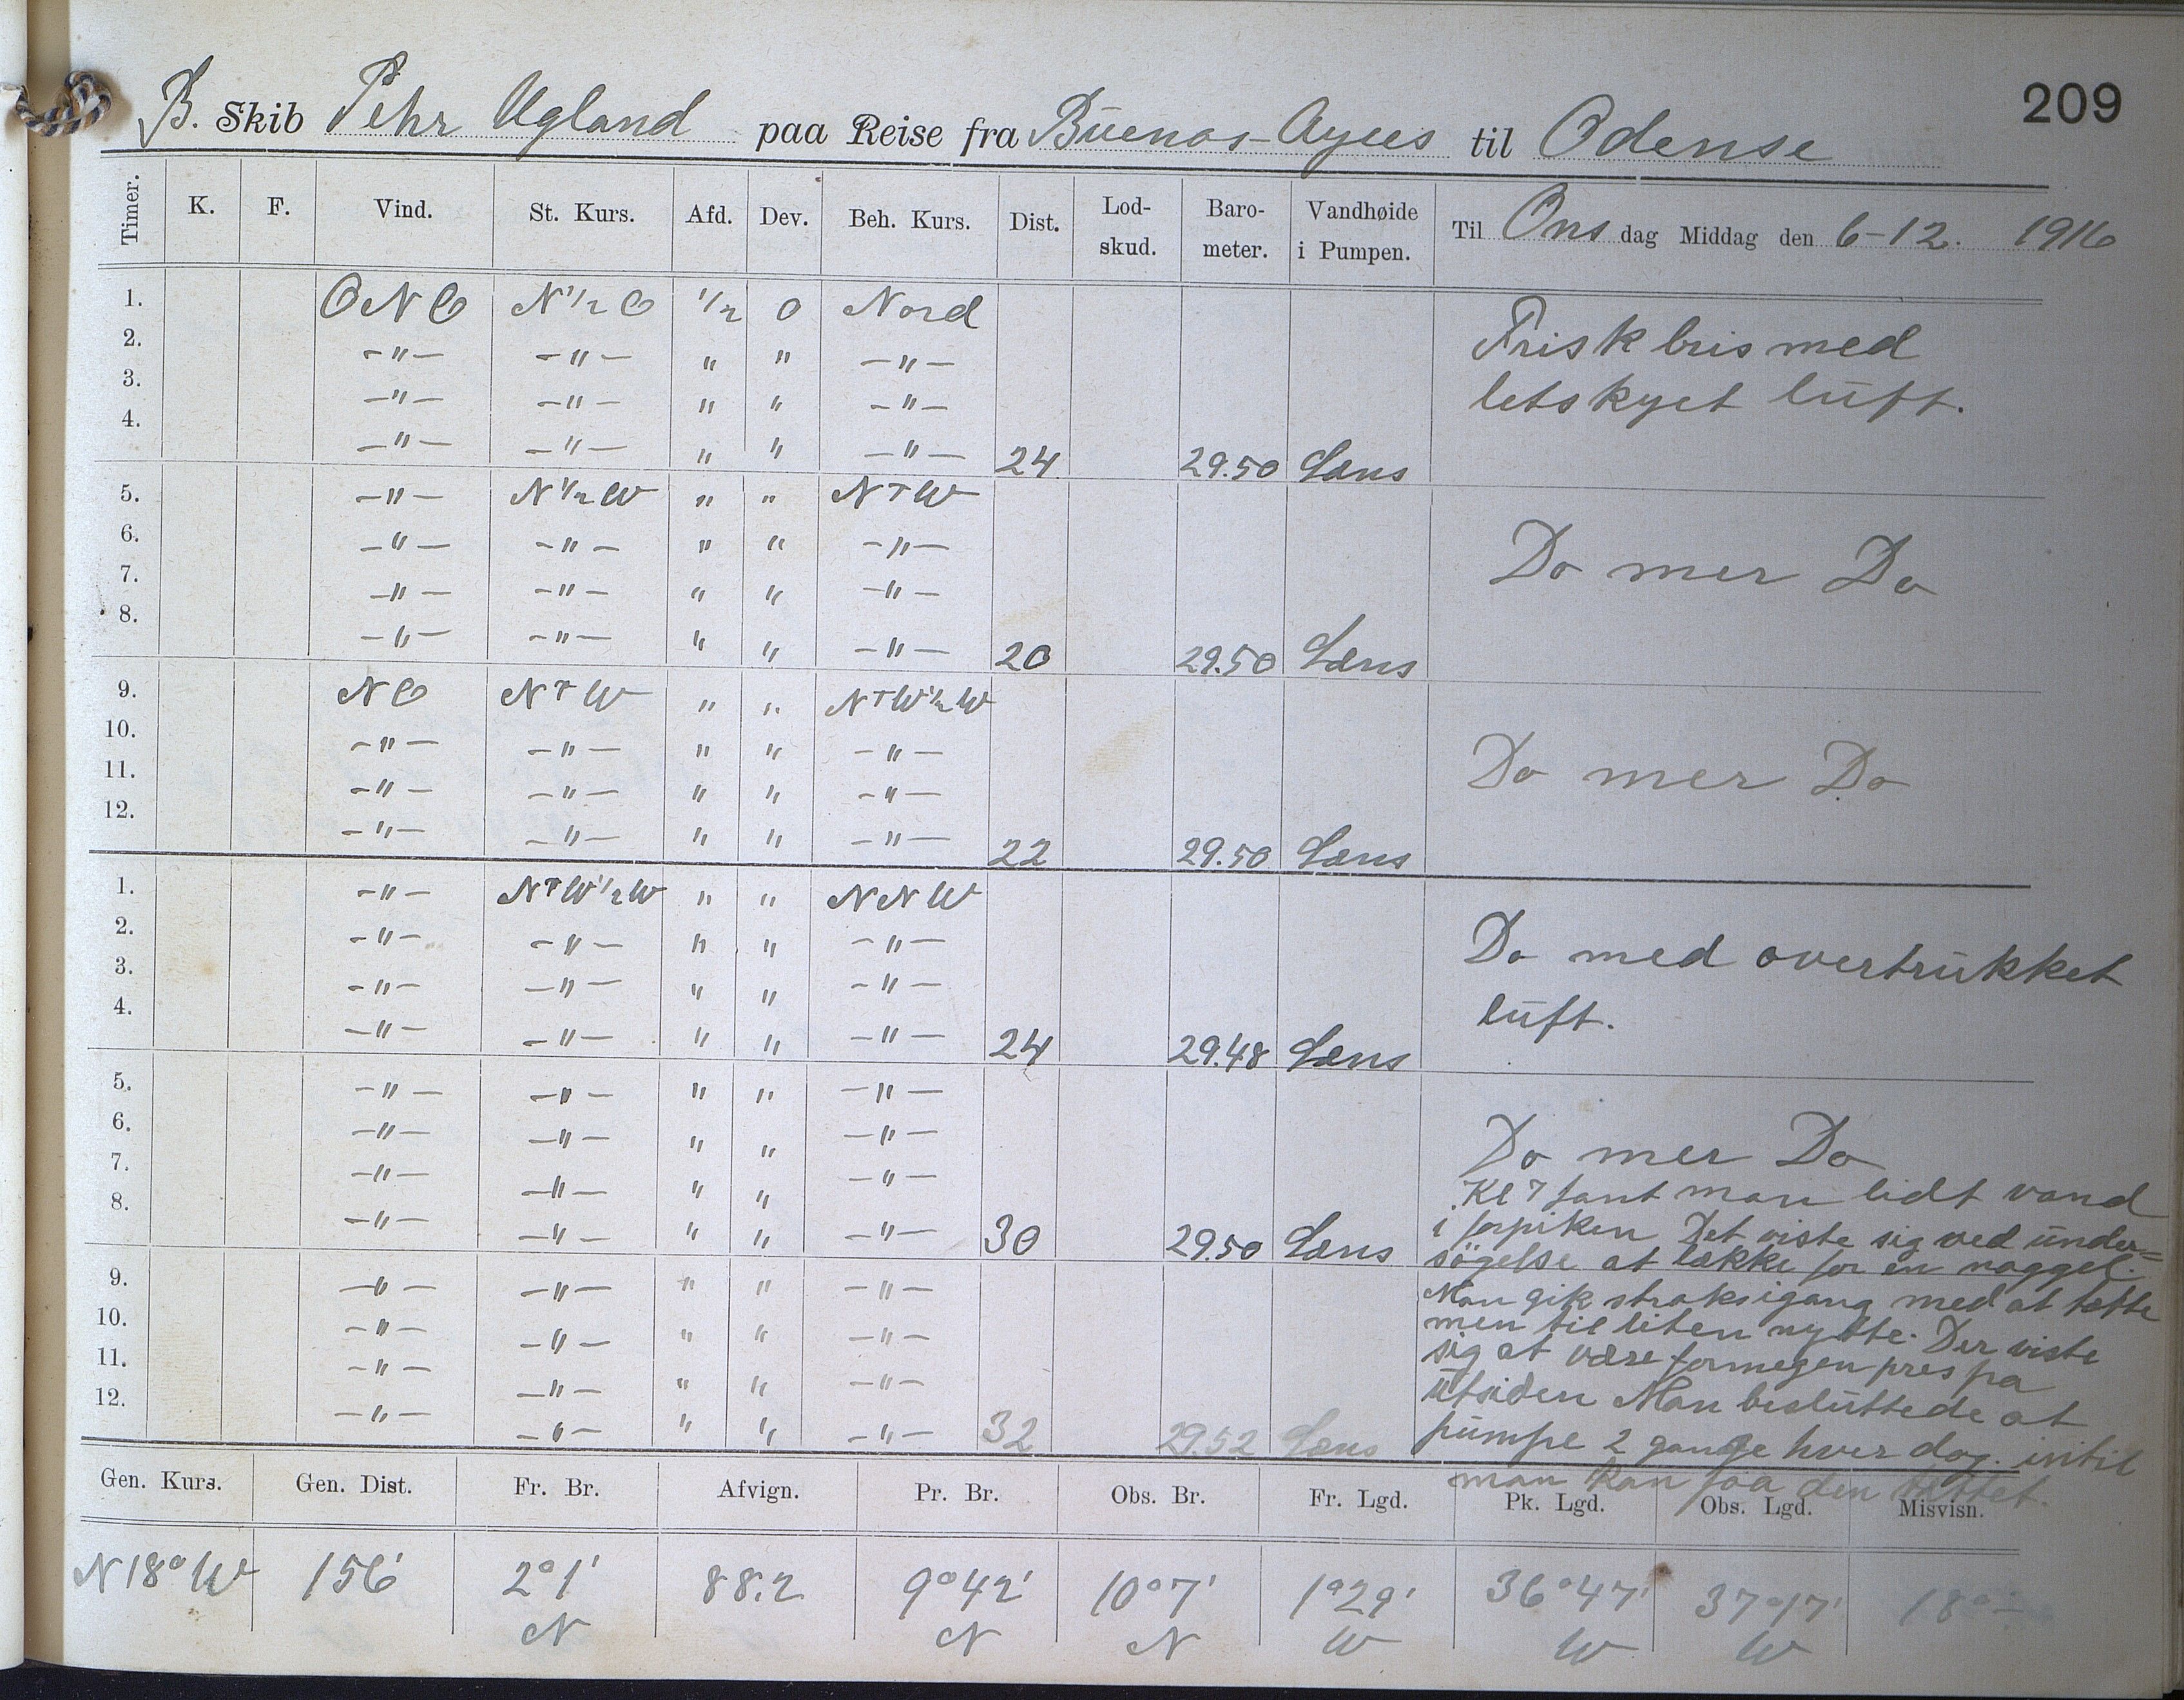 209
B. Skib Pehr Ugland paa Reise fra Buenos-Ayres til Odense
Timer. K. F. Vind. St. Kurs. Afd. Dev. Beh. Kurs. Dist. Lod-skud. Baro-meter. Vandhøide i Pumpen. Til Ons dag Middag den 6-12. 1916
1. ONO N 1/2 O 1/2 0 Nord
2. -"- -"- " " -"- Frisk bris med
3. -"- -"- " " -"- letskyet luft.
4. -"- -"- " " -"- 24 29.50 Læns
5. -"- N 1/2 W " " NTW
6. -"- -"- " " -"- Do mer Do
7. -"- -"- " " -"-
8. -"- -"- " " -"- 20 29.50 Læns
9. NO NTW " " NTW 1/2 W
10. -"- -"- " " -"- Do mer Do
11. -"- -"- " " -"-
12. -"- -"- " " -"- 22 29.50 Læns
1. -"- NTW 1/2 W " " NNW
2. -"- -"- " " -"- Do med overtrukket
3. -"- -"- " " -"- luft.
4. -"- -"- " " -"- 24 29.48 Læns
5. -"- -"- " " -"-
6. -"- -"- " " -"- Do mer Do
7. -"- -"- " " -"-
8. -"- -"- " " -"- 30 29.50 Læns
9. -"- -"- " " -"-
10. -"- -"- " " -"-
11. -"- -"- " " -"-
12. -"- -"- " " -"- 32 29.52 Læns
Kl 7 fant man lidt vand
i forpiken Det viste sig ved under=
søgelse at lække for en naggel.
Man gik straks igang med at tætte
men til liten nytte. Der viste
sig at være formegen pres pa
utsiden Man besluttede at
pumpe 2 gange hver dag. intil
man kan faa den tættet.
Gen. Kurs. Gen. Dist. Fr. Br. Afvign. Pr. Br. Obs. Br. Fr. Lgd. Pk. Lgd. Obs. Lgd. Misvisn.
N 18° W 156' 2°1' 88.2 9°42' 10°7' 1°29' 36°47' 37°17' 18°-
N N N W W W